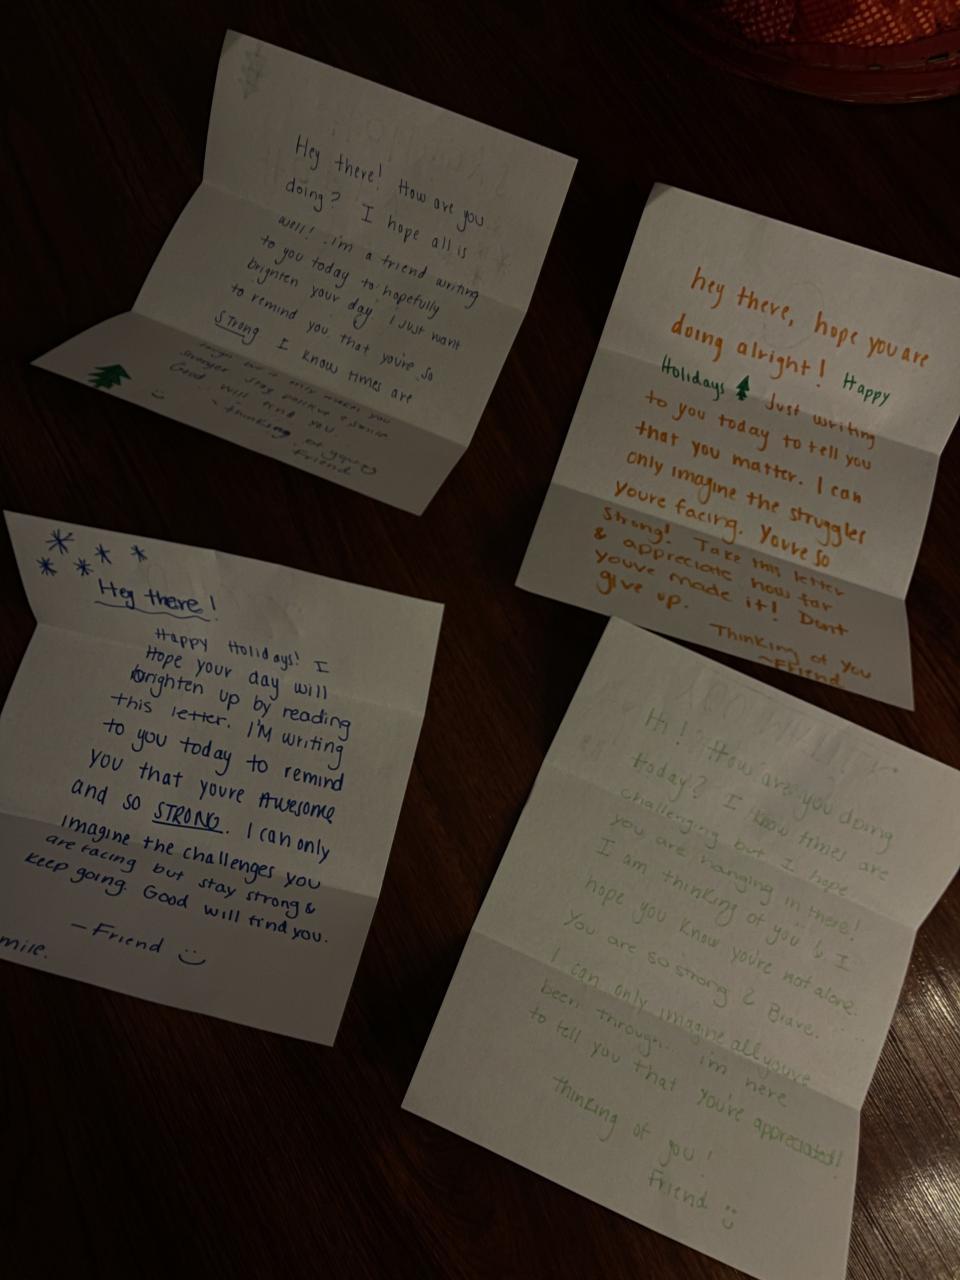 Hey there! How are you
doing? I hope all is
well! I'm a friend writing
to you today to hopefully
brighten your day. I just want
to remind you that you're so
STRONG I know times are
tough but it only makes you
stronger stay positive & smile
Good will find you.
~ thinking of you
Friend
hey there, hope you are
doing alright! Happy
Holidays Just writing
to you today to tell you
that you matter. I can
only imagine the struggles
youre facing. You're so
Strong! Take this letter
& appreciate how far
youve made it! Dont
give up.
Thinking of you
~Friend
Hey there!
Happy Holidays! I
Hope your day will
brighten up by reading
this letter. I'M writing
to you today to remind
you that youre Awesome
and so STRONG. I can only
imagine the challenges you
are facing but stay strong &
keep going. Good will find you.
—Friend
mile.
Hi! How are you doing
today? I know times are
challenging but I hope
you are hanging in there!
I am thinking of you & I
hope you know you're not alone.
You are so strong & Brave.
I can only imagine all youve
been through. im here
to tell you that you're appreciated!
thinking of you!
Friend